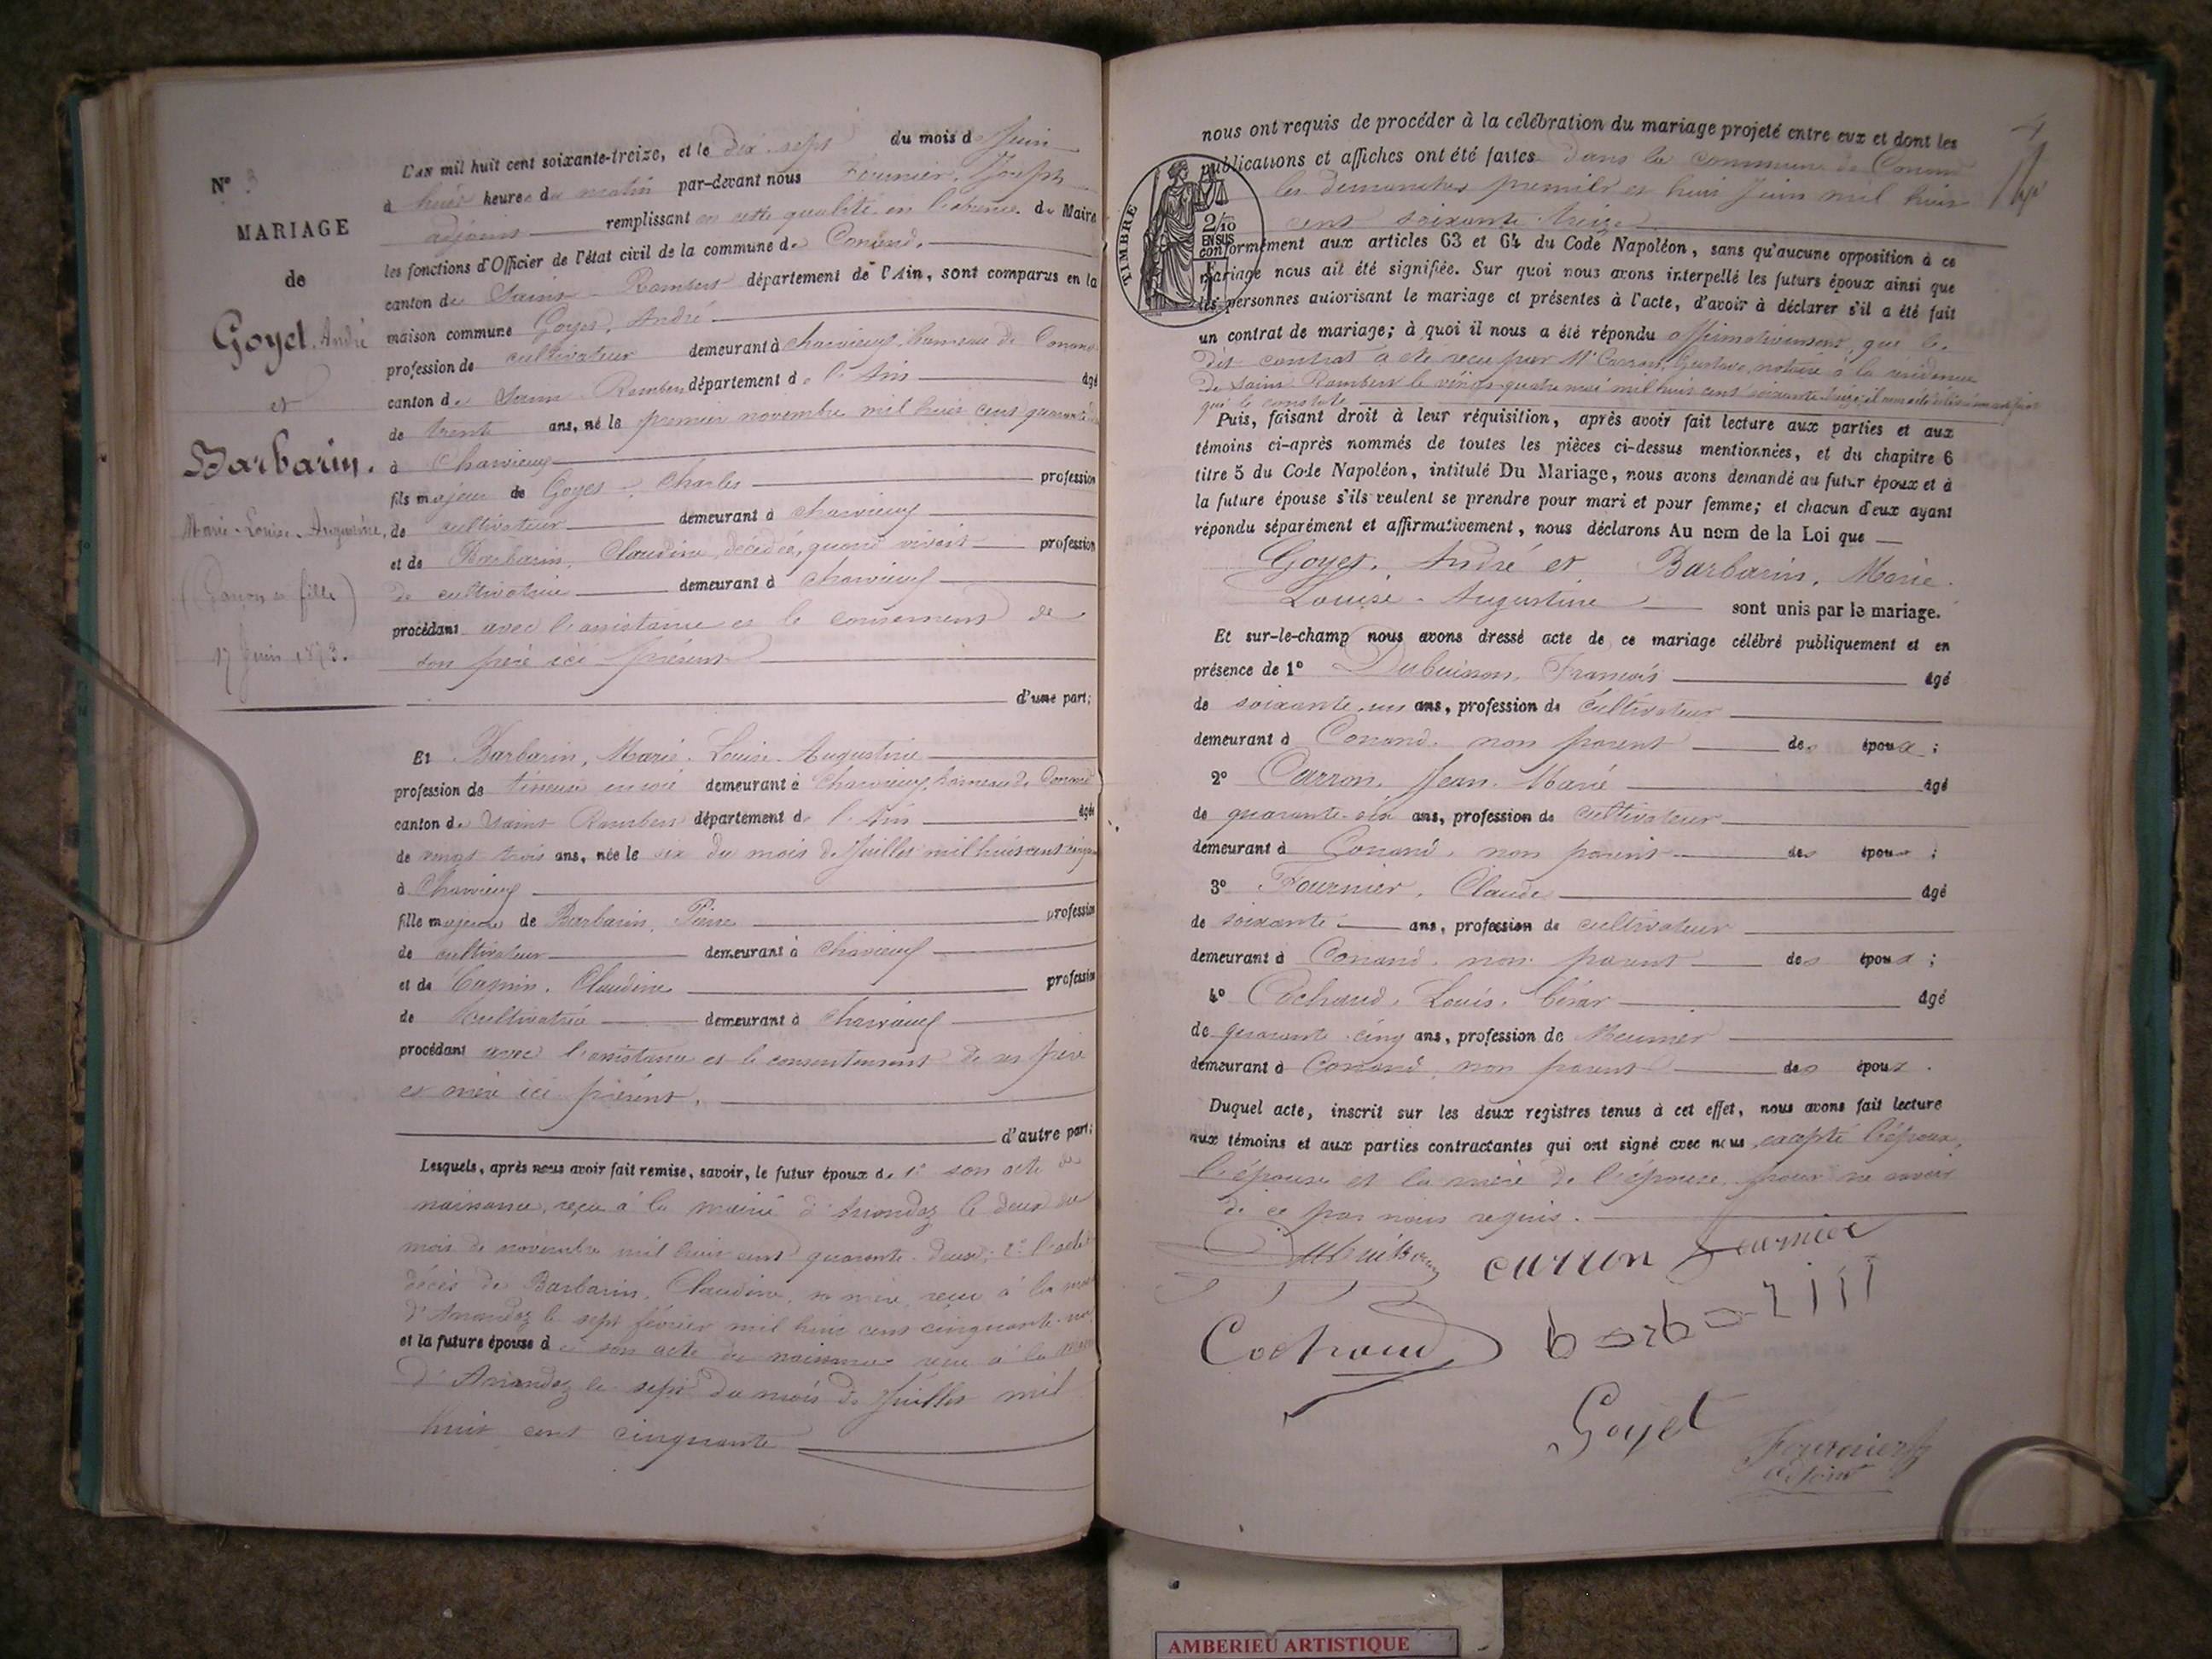 N° 3
MARIAGE
de
Goyet, André
et
Barbarin,
Marie-Louise-Augustine,
(Garçon et fille)
17 Juin 1873.
L'an mil huit cent soixante-treize, et le dix sept du mois de Juin
à huit heures du matin par-devant nous Fournier, Joseph
adjoint remplissant en cette qualité en l'absence du Maire
les fonctions d'Officier de l'état civil de la commune de Conand,
canton de Saint-Rambert département de l'Ain, sont comparus en la
maison commune Goyet, André
profession de cultivateur demeurant à Charvieux, hameau de Conand
canton de Saint Rambert département de l'Ain âgé
de trente ans, né le premier novembre mil huit cent quarante
à Charvieux
fils majeur de Goyet, Charles profession
de cultivateur demeurant à Charvieux
et de Barbarin, Claudine, décédée, quand vivait profession
de cultivatrice demeurant à Charvieux
procédant avec l'assistance et le consentement de
son père ici présent
d'une part;
Et Barbarin, Marie-Louise-Augustine
profession de tisseuse en soie demeurant à Charvieux, hameau de Conand
canton de Saint Rambert département de l'Ain âgée
de vingt trois ans, née le six du mois de Juillet mil huit cent cinquante
à Charvieux
fille majeure de Barbarin, Pierre profession
de cultivateur demeurant à Charvieux
et de Claudine profession
de cultivatrice demeurant à Charvieux
procédant avec l'assistance et le consentement de ses père
et mère ici présent.
d'autre part;
Lesquels, après nous avoir fait remise, savoir, le futur époux de 1° son acte de
naissance, reçu à la mairie d'Arandaz le deux du
mois de novembre mil huit cent quarante-deux; 2° l'acte de
décès de Barbarin, Claudine, sa mère, reçu à la mairie
d'Arandaz le sept février mil huit cent cinquante
et la future épouse de son acte de naissance reçu à la mairie
d'Arandaz le sept du mois de Juillet mil
huit cent cinquante
4
nous ont requis de procéder à la célébration du mariage projeté entre eux et dont les
publications et affiches ont été faites dans la commune de Conand
les dimanches premier et huit Juin mil huit
cent soixante treize
TIMBRE
2/10
EN SUS
conformément aux articles 63 et 64 du Code Napoléon, sans qu'aucune opposition à ce
mariage nous ait été signifiée. Sur quoi nous avons interpellé les futurs époux ainsi que
les personnes autorisant le mariage et présentes à l'acte, d'avoir à déclarer s'il a été fait
un contrat de mariage; à quoi il nous a été répondu affirmativement que le
dit contrat a été reçu par Mr Carron, Gustave, notaire à la résidence
de Saint Rambert le vingt-quatre mai mil huit cent soixante treize
qui le constate
Puis, faisant droit à leur réquisition, après avoir fait lecture aux parties et aux
témoins ci-après nommés de toutes les pièces ci-dessus mentionnées, et du chapitre 6
titre 5 du Code Napoléon, intitulé Du Mariage, nous avons demandé au futur époux et à
la future épouse s'ils veulent se prendre pour mari et pour femme; et chacun d'eux ayant
répondu séparément et affirmativement, nous déclarons Au nom de la Loi que
Goyet, André et Barbarin, Marie-
Louise-Augustine sont unis par le mariage.
Et sur-le-champ nous avons dressé acte de ce mariage célébré publiquement et en
présence de 1° Dubuisson, François âgé
de soixante-un ans, profession de cultivateur
demeurant à Conand, non parent des époux;
2° Carron, Jean-Marie âgé
de quarante-six ans, profession de cultivateur
demeurant à Conand, non parent des époux;
3° Fournier, Claude âgé
de soixante ans, profession de cultivateur
demeurant à Conand, non parent des époux;
4° Cochaud, Louis-César âgé
de quarante-cinq ans, profession de Meunier
demeurant à Conand, non parent des époux.
Duquel acte, inscrit sur les deux registres tenus à cet effet, nous avons fait lecture
aux témoins et aux parties contractantes qui ont signé avec nous excepté l'époux,
l'épouse et la mère de l'épouse pour ne savoir
de ce par nous requis.
Dubuisson carron Fournier
Cochaud barbarin
Goyet
Fournier
adjoint
AMBERIEU ARTISTIQUE